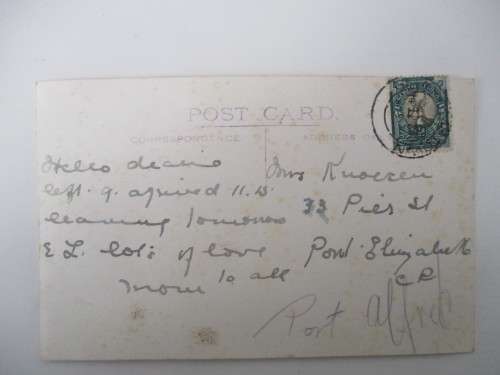 POST CARD.
CORRESPONDENCE
ADDRESS
Hello
left 9. arrived 11.15
leaving tomorrow
E L. lots of love
to all
Mom
Mrs
33 Pier St
Port Elizabeth
C P.
Port Alfred